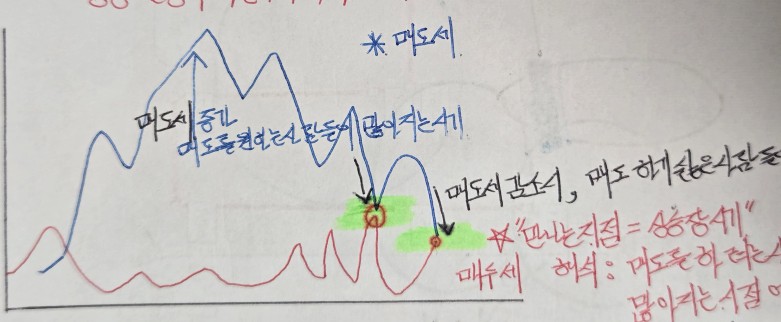 * 매도세
매도세 증가
매도를 원하는 사람들이 많아지는 시기
매도세 감소시, 매도 하기 싫은 사람들
☆ "만나는지점 = 상승장시기"
매수세
해석 : 매도를 하려는
많아지는 시점